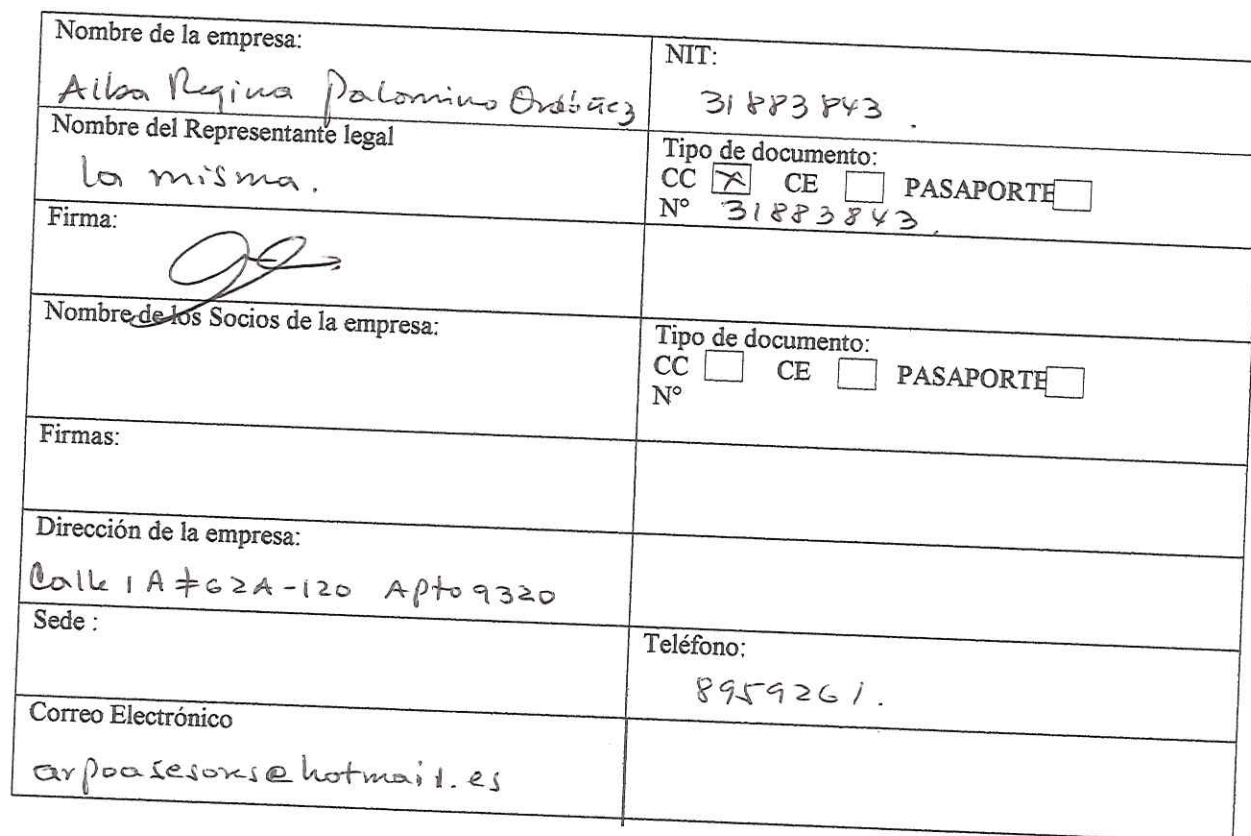 Nombre de la empresa:
Alba Regina Palomino Ordóñez
NIT:
31883843.
Nombre del Representante legal
la misma.
Tipo de documento:
CC X CE PASAPORTE
N° 31883843.
Firma:
Nombre de los Socios de la empresa:
Tipo de documento:
CC CE PASAPORTE
N°
Firmas:
Dirección de la empresa:
Calle 1A #62A-120 Apto 9320
Sede :
Teléfono:
8959261.
Correo Electrónico
arpoasesores@hotmail.es